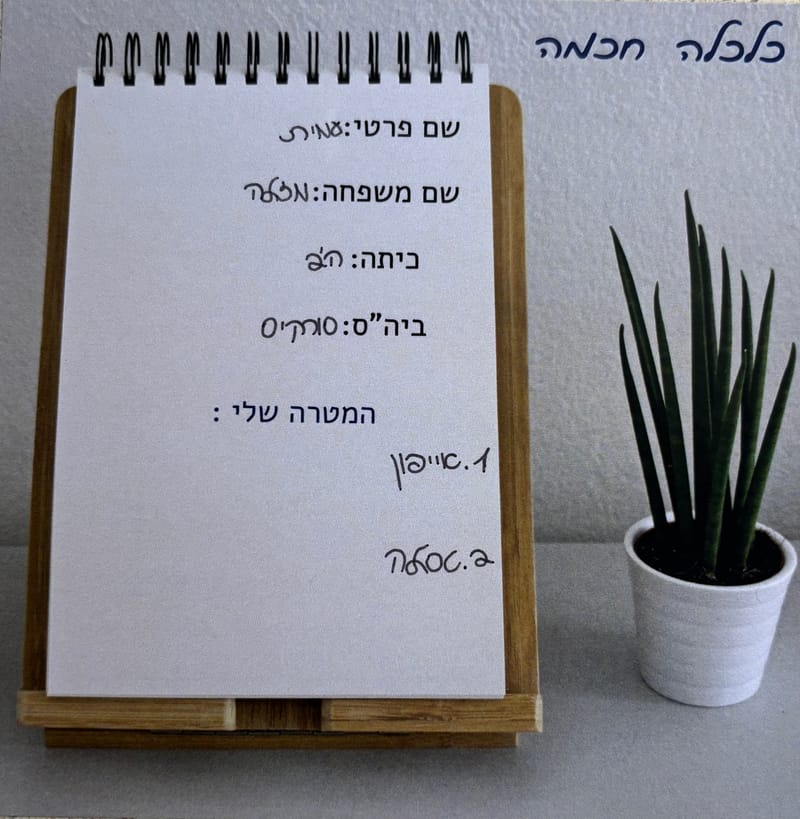 כלכלה חכמה
שם פרטי: עמית
שם משפחה: מזלה
כיתה: ה'2
ביה"ס: סורקיס
המטרה שלי :
1. אייפון
2. טסלה